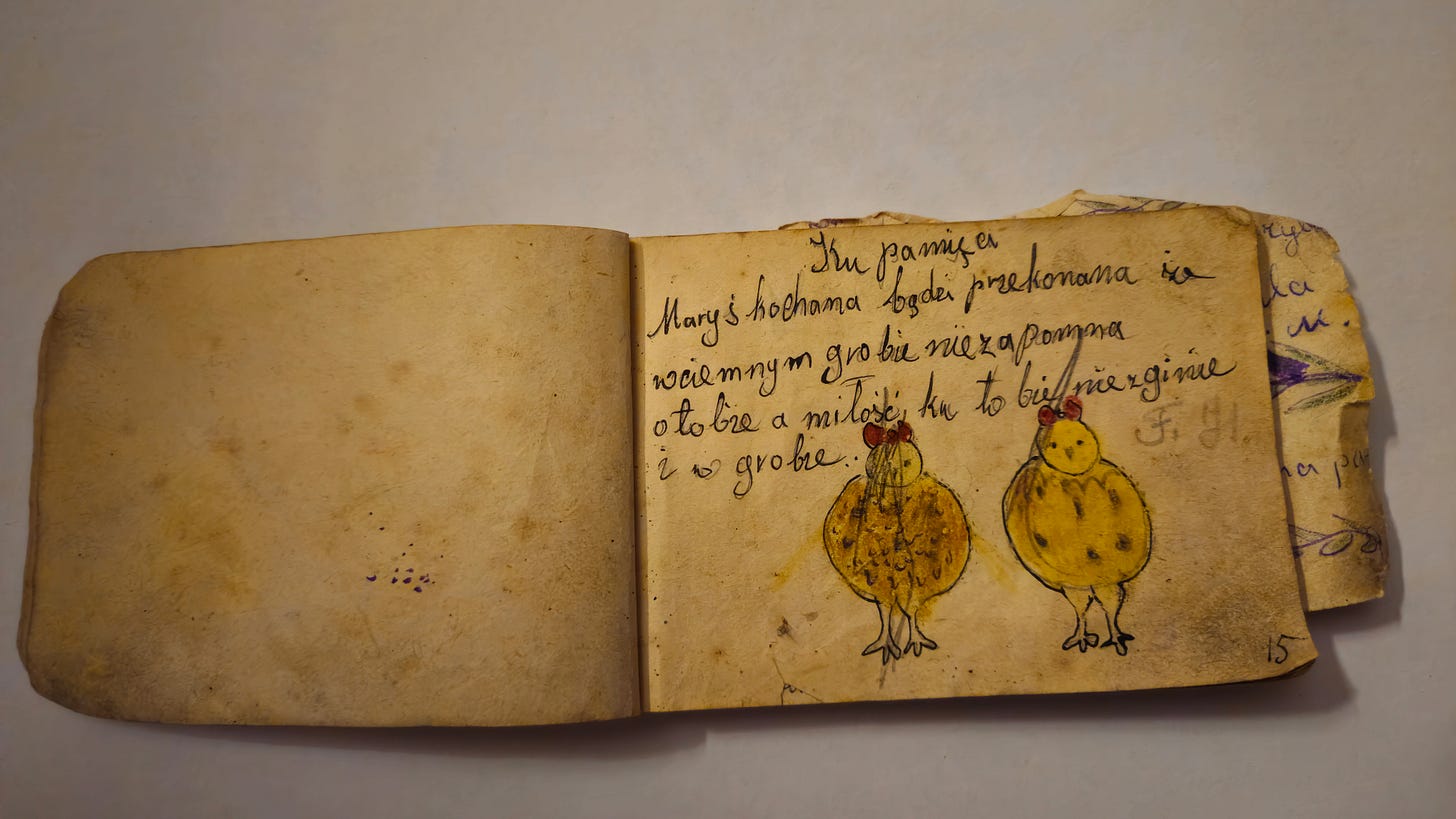 Ku pamięci
Maryś kochana bądzi przekonana że
wciemnym grobie niezapomna
otobie a miłość ku to bie niezginie
i w grobie..
F. H.
15
la
. M.
na pa